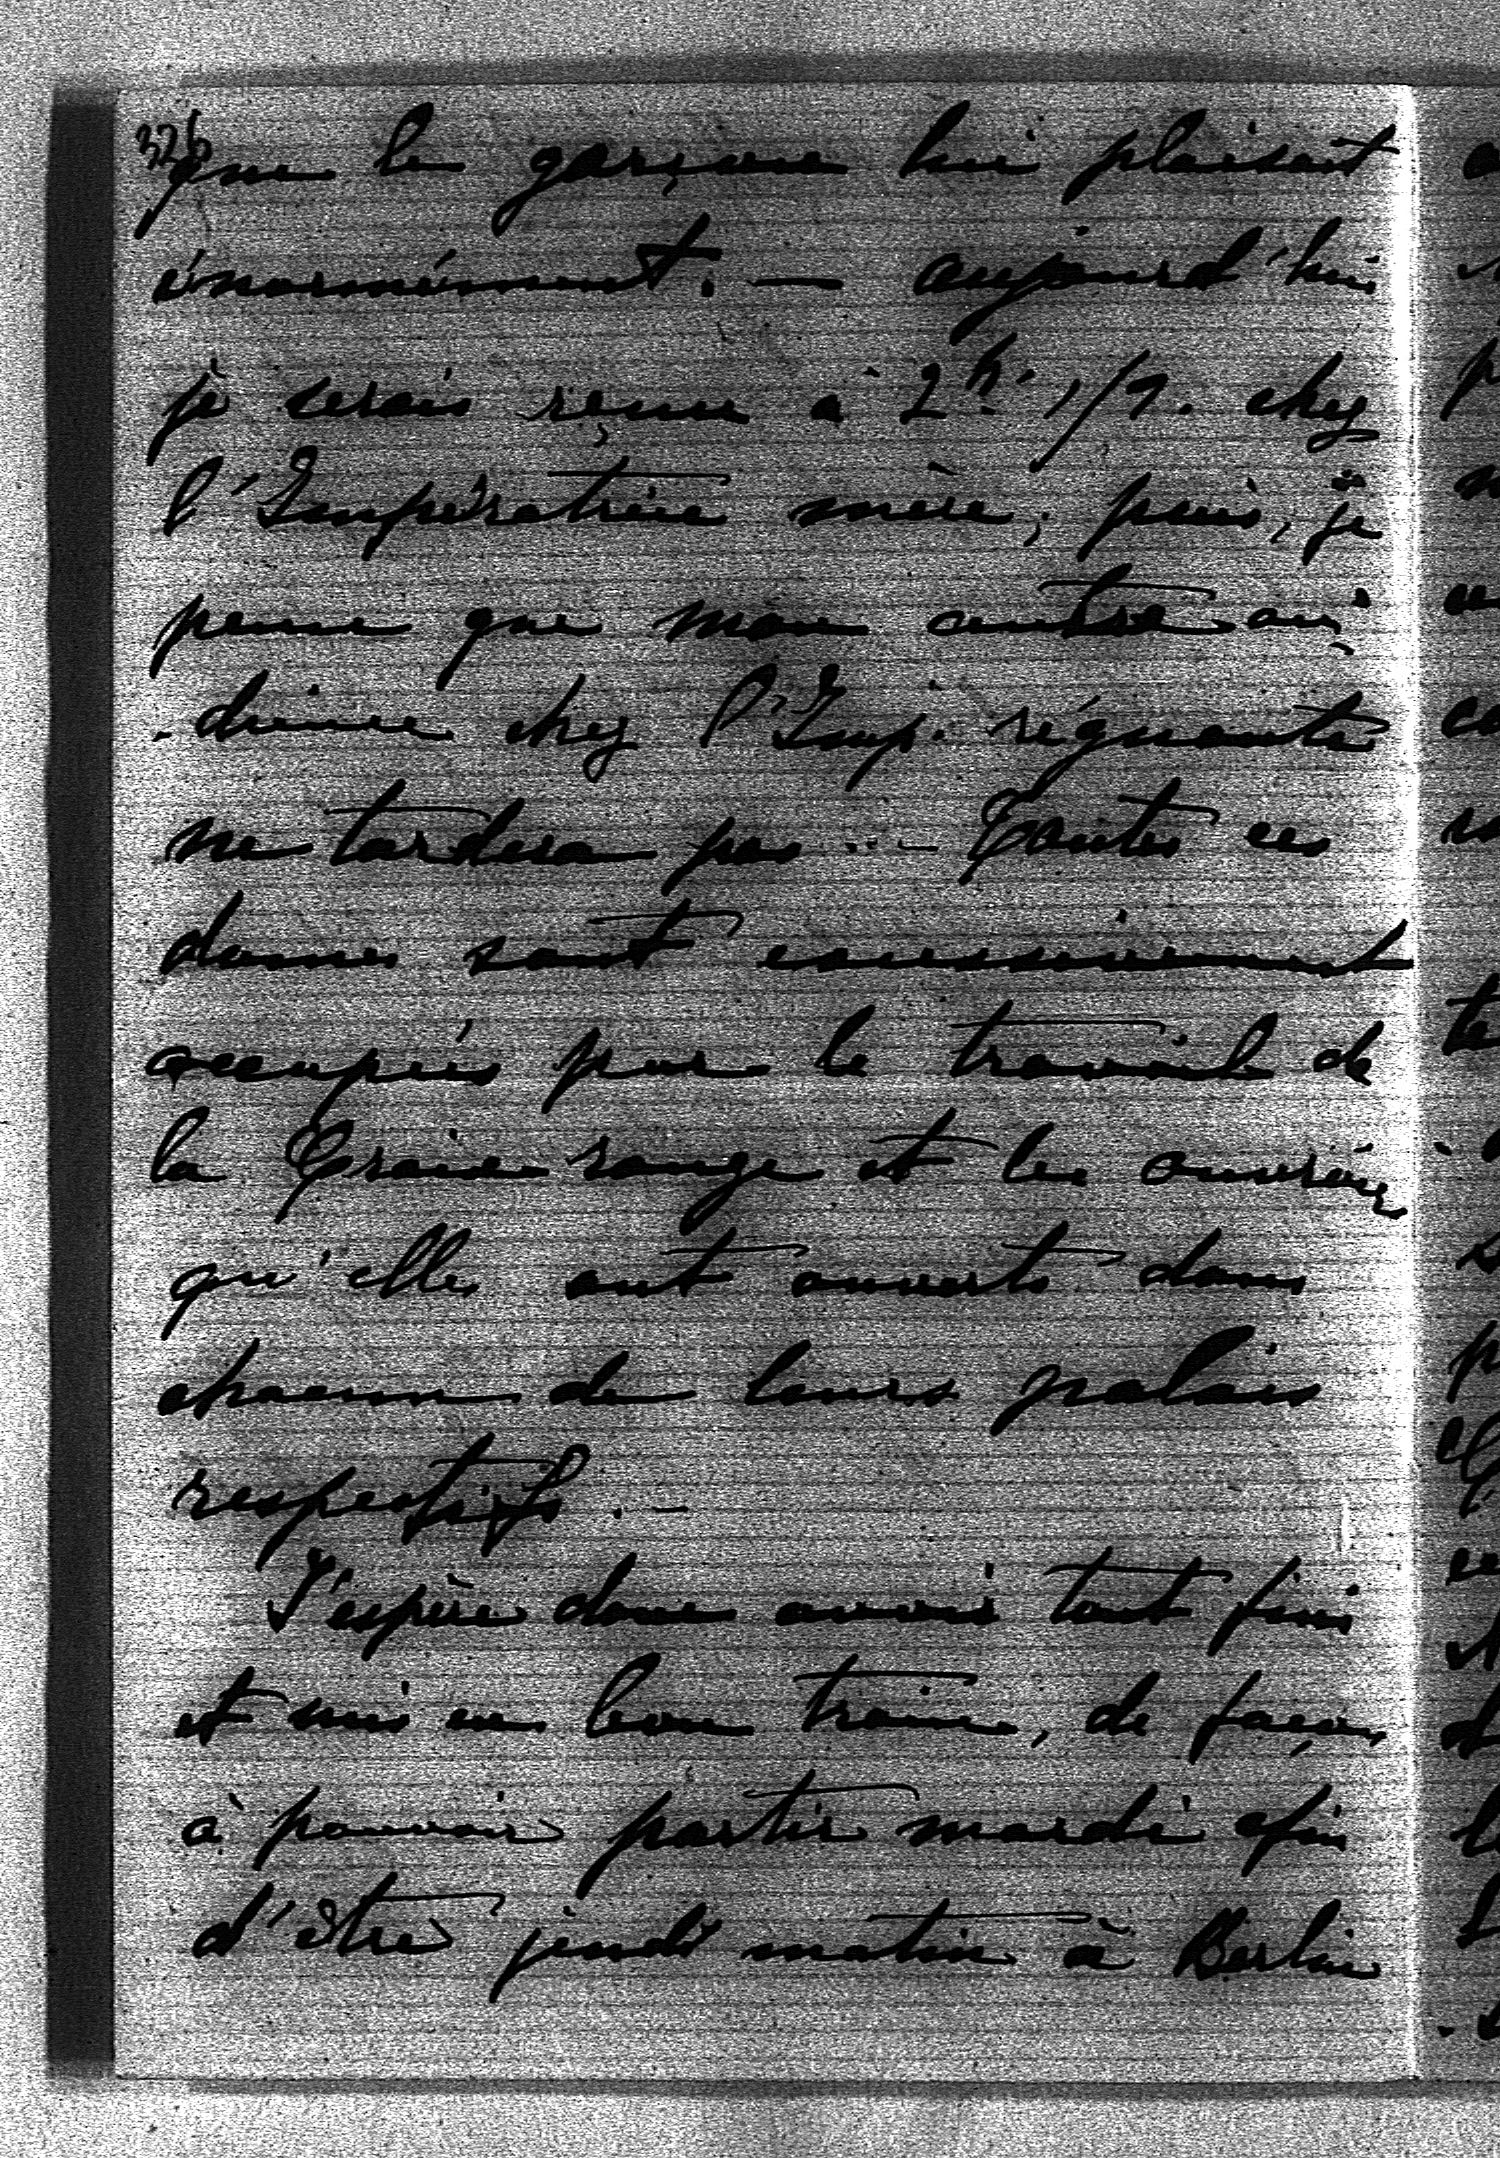 326
que le garçon lui plaisait
énormément. — aujourd'hui
je serais reçue à 2h. 1/2. chez
l'Impératrice mère; puis, je
pense que mon autre au
-dience chez l'Imp. régnante
ne tardera pas. — Toutes ces
dames sont excessivement
occupées par le travail de
la Croix rouge et les ouvroirs
qu'elles ont ouverts dans
chacun de leurs palais
respectifs. —
J'espère donc avoir tout fini
et mis en bon train, de façon
à pouvoir partir mardi afin
d'être jeudi matin à Berlin